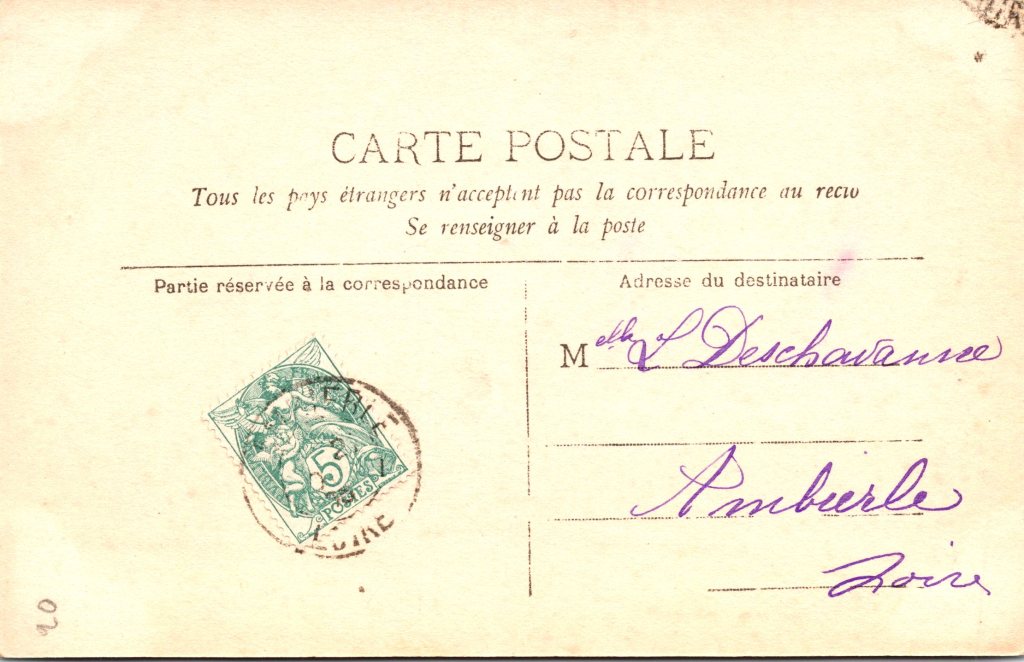 CARTE POSTALE
Tous les pays étrangers n'acceptent pas la correspondance au recto
Se renseigner à la poste
Partie réservée à la correspondance
Adresse du destinataire
Melle L Deschavanne
Ambierle
Loire
5
POSTES
LOIRE
20